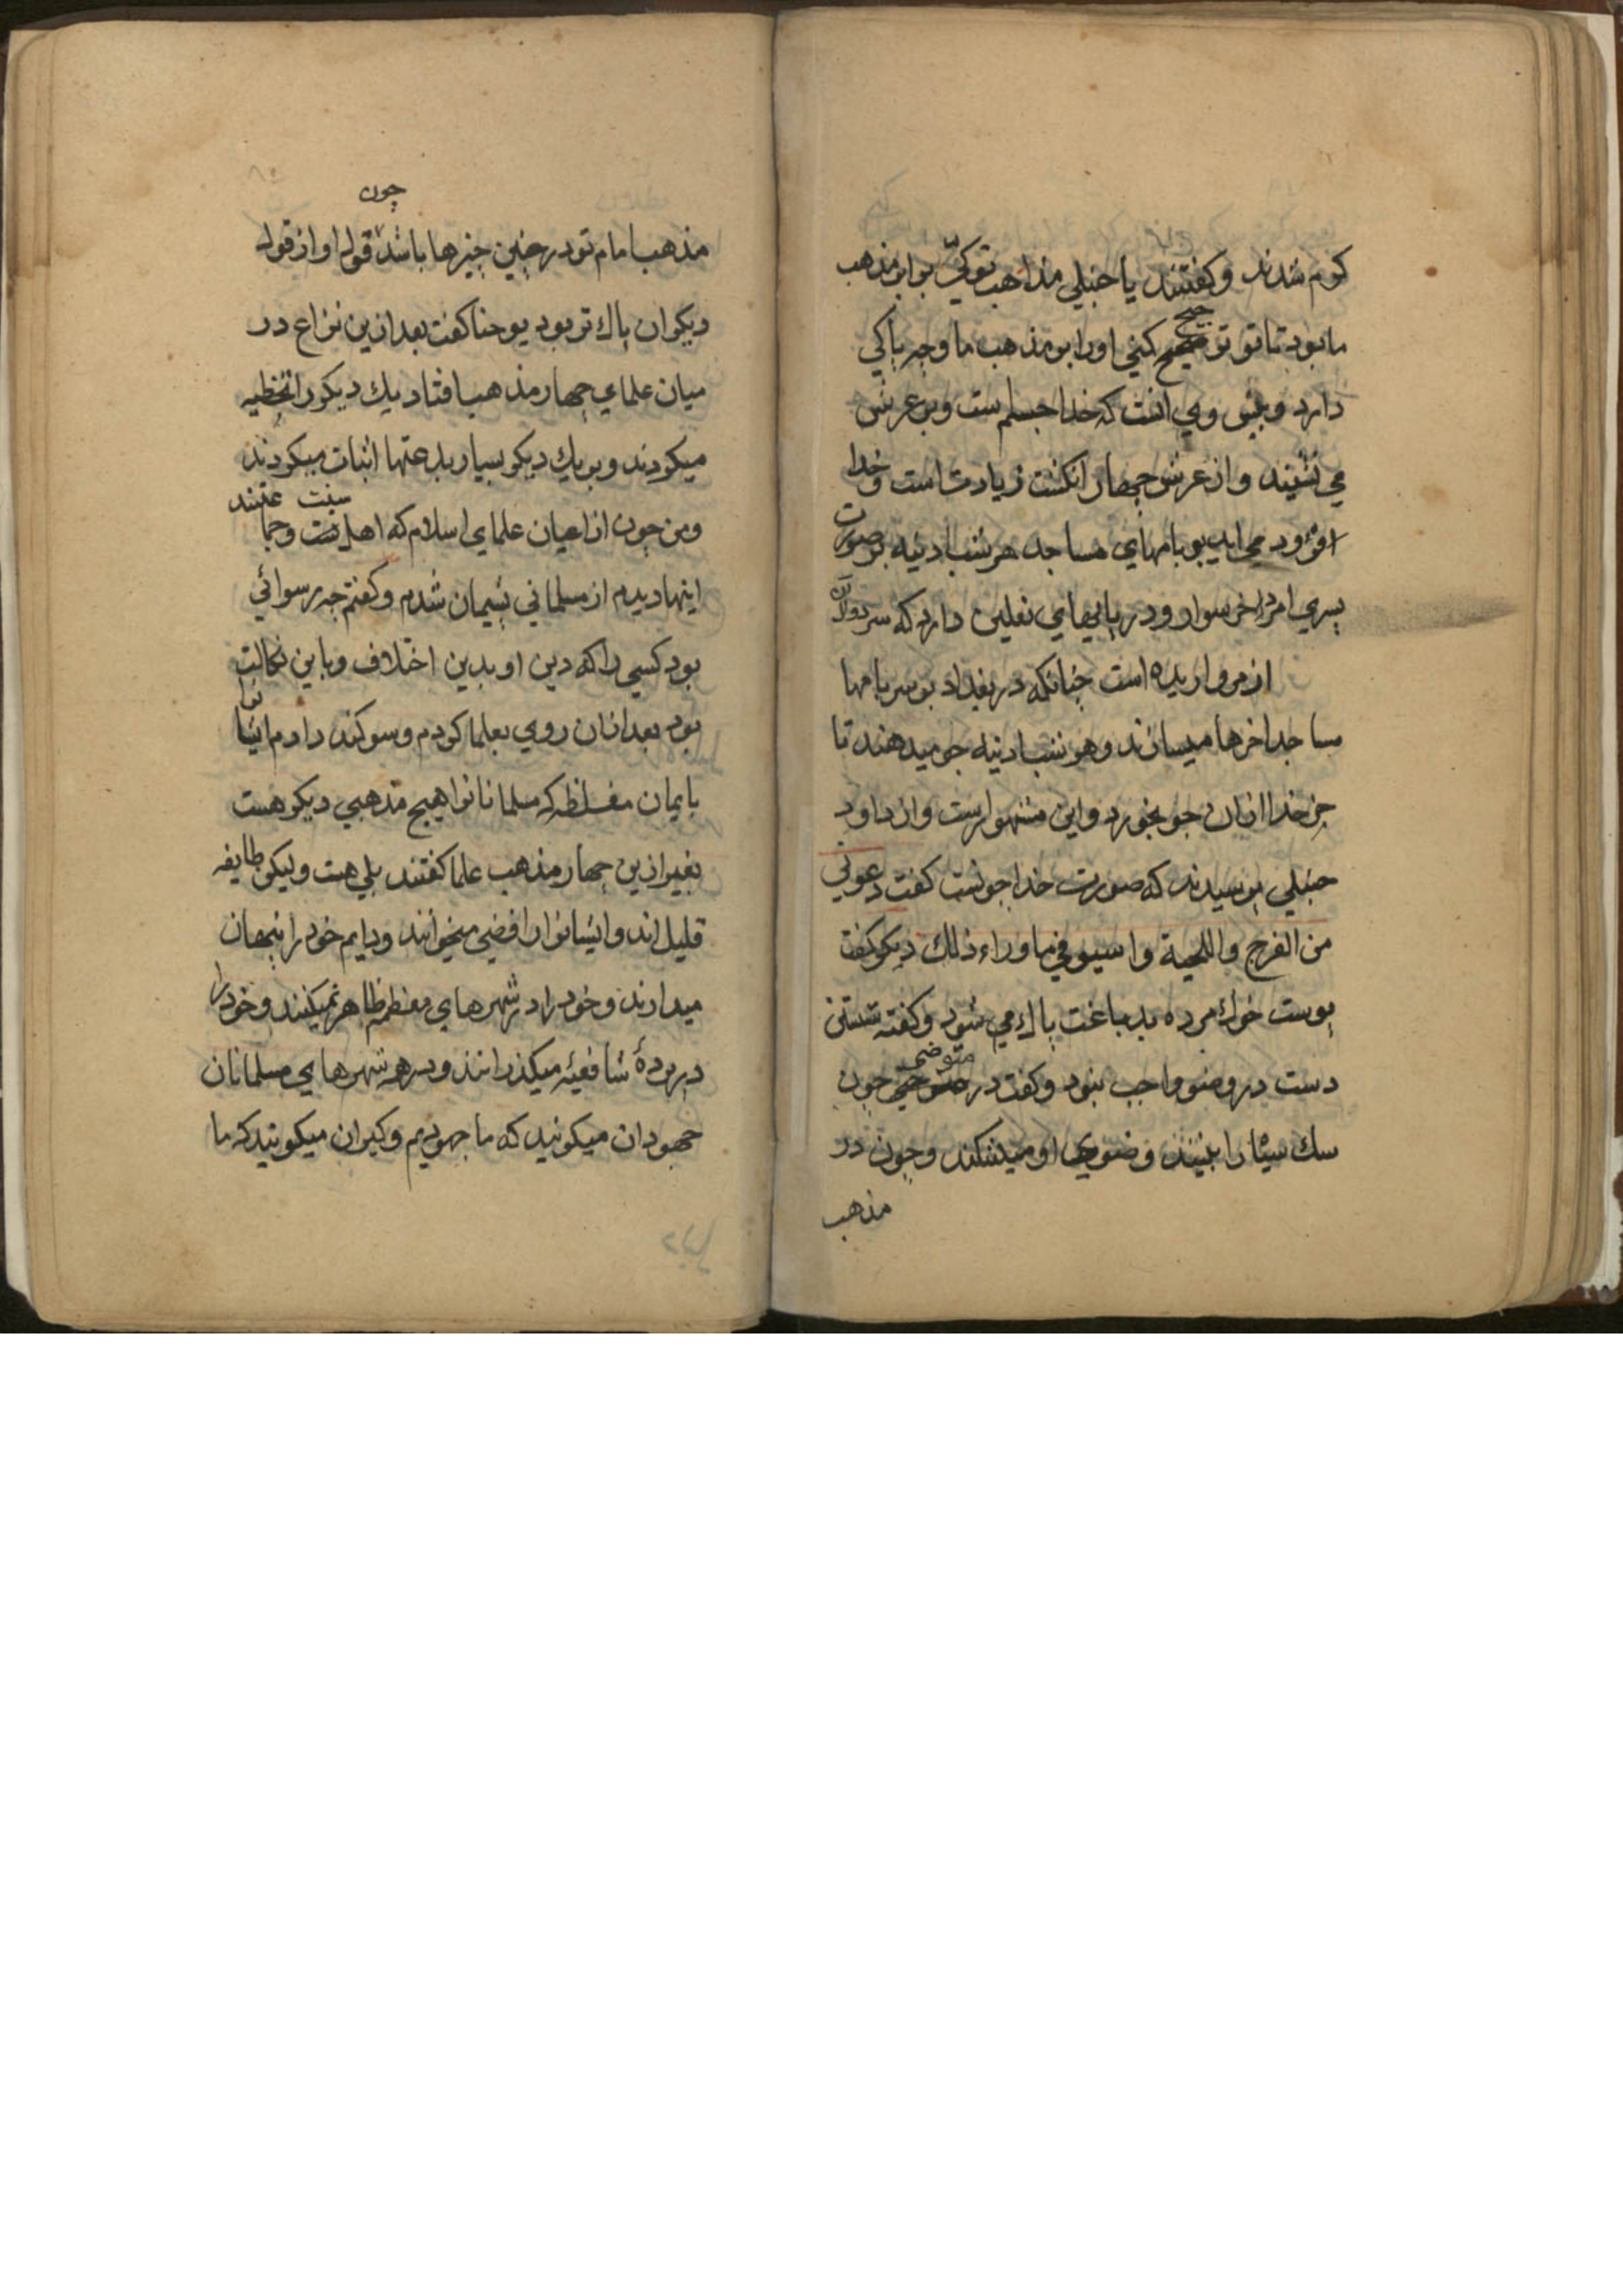 كرم شدند وكفتند يا حنبلي مذاهب تو كيّ برابر مذهب
ما بود تا تو ترجيح كني اورا بر مذهب ما وچه پاكي
دارد وپيش وي انست كه خدا جسم ست وبر عرش
مي نشيند واز عرش چهار انكشت زيادت است وخدا
فرود مي ايد بر بامهاي مساجد هر شب ادينه بر صورت
پسري امرد خر سوار ودر پايهاي نعلين دارد كه سر دوال آن
از مرواريده است چنانكه در بغداد بر سر بامها
مساجد اخرها ميسازند وهر شب ادينه جو ميدهند تا
خر خدا ازان جو بخورد واين مشهورست واز داود
حنبلي پرسيدند كه صورت خدا چونست كفت دعوني
من الفرج واللحية واسيروني ما وراء ذلك ديكر كفت
پوست خوك مرده بدباغت پاك مي شود وكفته شستن
دست در وضو واجب نبود وكفت در متوضي چون
سك سياه را بيند وضوي او ميشكند وچون در
مذهب
مذهب امام تو در چنين چيزها باشد چون قول او از قول
ديكران پاك تر بود يوحنا كفت بعد ازين نزاع در
ميان علماي چهار مذهب افتاد يك ديكر را تخطيه
ميكردند وبر يك ديكر بسيار بدعتها اثبات ميكردند
ومن چون از اعيان علماي اسلام كه اهل سنت وجماعتند
اينها ديدم از مسلماني پشيمان شدم وكفتم چه رسوائي
بود كسي را كه دين او بدين اختلاف وباين نكالت
بود بعد ازان روي بعلما كردم وسوكند دادم ايشانرا
بايمان مغلظه كه مسلمانانرا هيچ مذهبي ديكر هست
بغير ازين چهار مذهب علما كفتند بلي هست وليكن طايفه
قليل اند وايشانرا رافضي ميخوانند ودايم خود را پنهان
ميدارند وخود را در شهرهاي معظم ظاهر نميكنند وخود را
در پردهٔ شافعيه ميكذرانند ودر همه شهرهاي مسلمانان
جهودان ميكويند كه ما جهوديم وكبران ميكويند كه ما